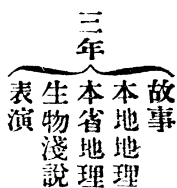 三年
故事
本地地理
本省地理
生物淺説
表演